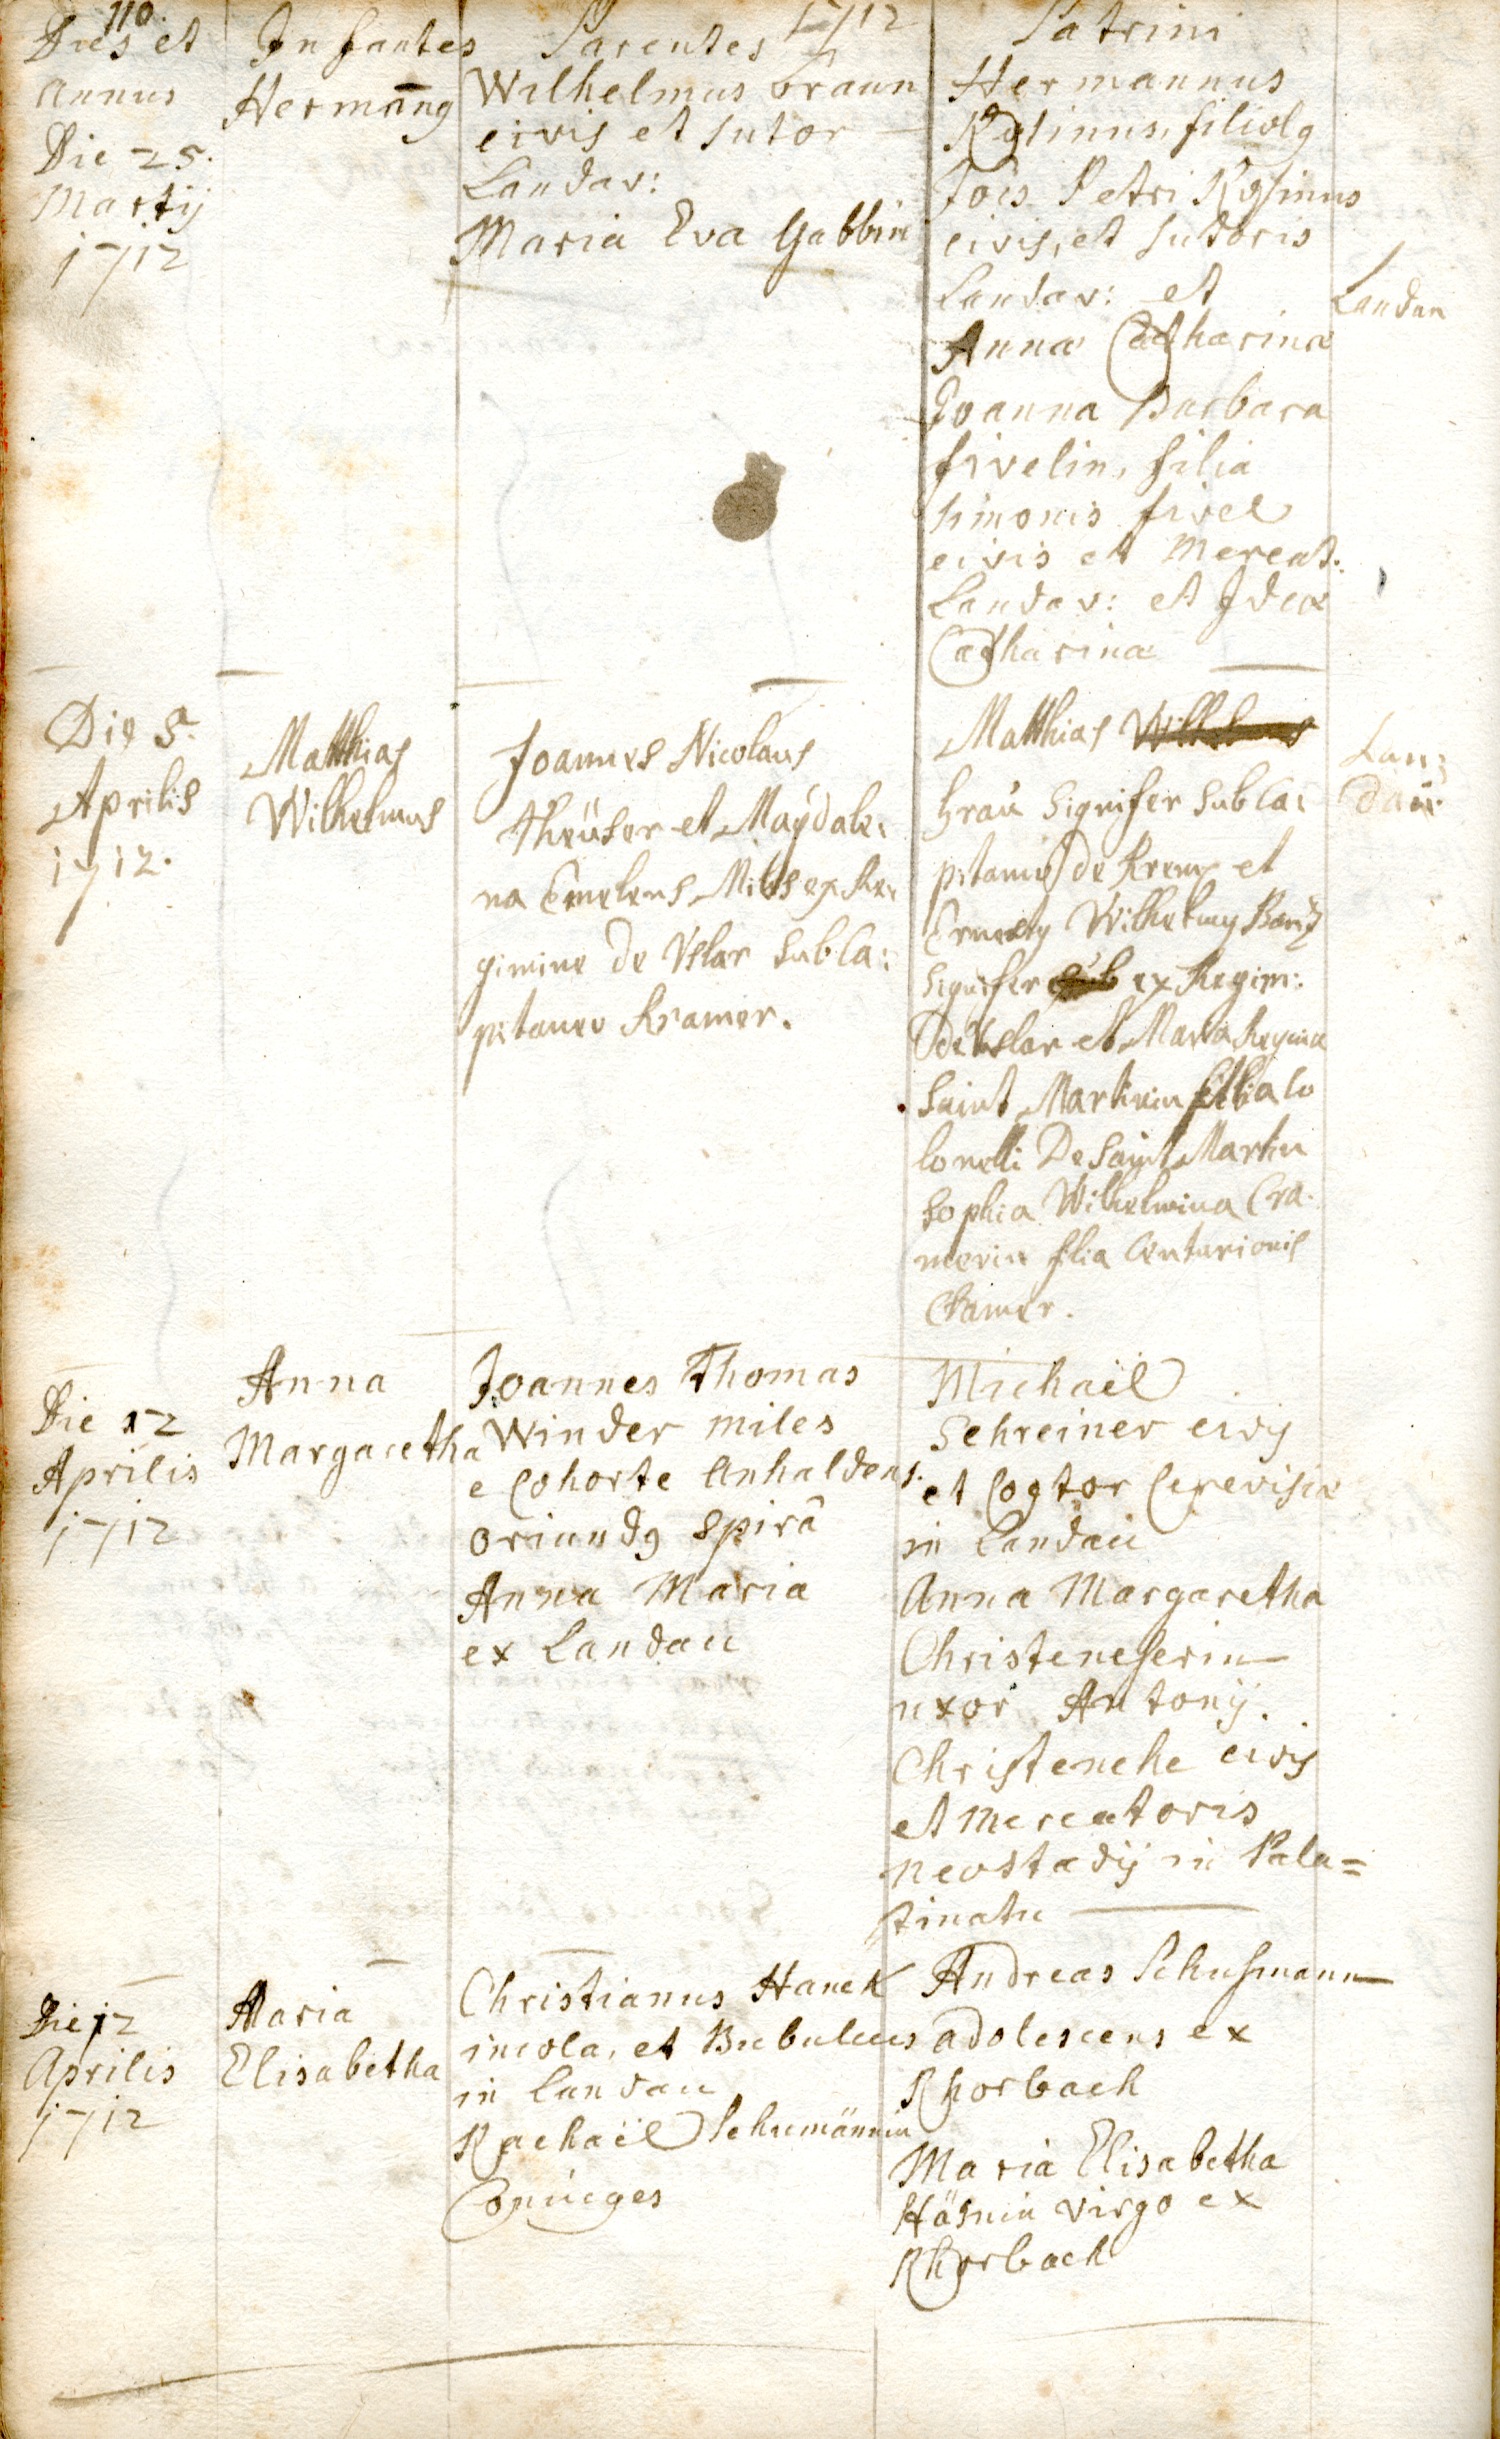 110.
Dies et Infantes Parentes 1712 Patrini
annus
Die 25.
Martij
1712
Hermang
Wilhelmus Braun
civis et sutor
Landav:
Maria Eva Gabbin
Hermannus
Rosinus, filiolg
Jois Petri Rosinus
civis, et sutoris
Landav: et
Annæ Catharinæ
Joanna Barbara
fivelin, filia
simonis fivel
civis et Mercat:
Landav: et Idæ
Catharinæ
Landau
Die 5.
Aprilis
1712.
Matthias
Wilhelmus
Joannes Nicolaus
Theüser et Magdale:
na Emelens Miles ex Re:
gimine de Vslar sub Ca:
pitaneo Kramer.
Matthias Wilhelmus
Grau signifer sub Ca:
pitanio de Kreux et
Ernestg Wilhelmg
signifer sub ex Regim:
de Vslar et Maria Regina
Saint Martinin filia Co
lonelli De Saint Martin
Sophia Wilhelmina Cra
merin filia Centurionis
Cramer.
Lan:
dau.
Die 12
Aprilis
1712
Anna
Margaretha
Joannes Thomas
Winder miles
e Cohorte Anhaldens.
oriundg Spirâ
Anna Maria
ex Landau
Michaël
Schreiner civis
et Coctor Cerevisiæ
in Landau
Anna Margaretha
Christeneherin
uxor Antonij
Christenehe civis
et Mercatoris
Neostadij in Pala=
tinatu
Die 12
Aprilis
1712
Maria
Elisabetha
Christianus Hanck
incola, et Bubulcus
in Landau
Rachaël Schumännin
Conjuges
Andreas Schuhmann
adolescens ex
Rhorbach
Maria Elisabetha
Häsnin virgo ex
Rhorbach